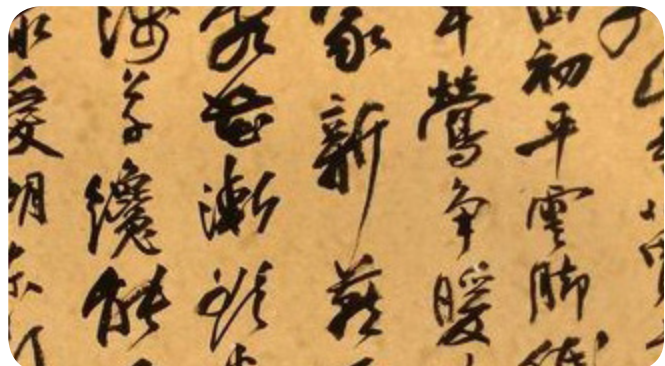 山寺
面初平雲脚低
早鶯争暖
家新燕
花漸欲
淺草纔能
愛湖東行